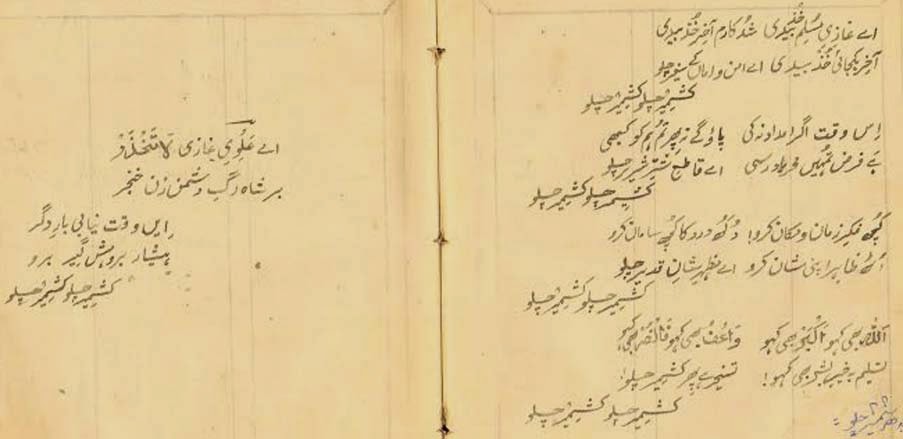 اے غازیِ مُسلِم خُذْ بِیَدی شُد کارم آخر خُذْ بِیَدی
آخِر بکجائی خُذْ بِیَدی اے امن و اماں کے سفیر چلو
کشمیر چلو کشمیر چلو
اِس وقت اگر امداد نہ کی پاؤگے نہ پھر تم ہم کو کبھی
ہے فرض تمہیں فریاد رسی اے قاطعِ شرِّ شریر چلو
کشمیر چلو کشمیر چلو
کُچھ فکرِ زمان و مکان کرو! دُکھ درد کا کُچھ سامان کرو
اُٹھ ظاہر اپنی شان کرو اے مظہرِ شانِ قدیر چلو
کشمیر چلو کشمیر چلو
اَللہُ بھی کہو اَکْبَرُ بھی کہو وَاعْفُ بھی کہو فَانْصُرْ بھی کہو
تسلیم بہ خیرِ بشر بھی کہو! پھر کشمیر چلو!
کشمیر چلو کشمیر چلو
کشمیر چلو
اے عَلَوِیِ غازی لَا تَحْذَرْ
بر شاہ رگِ دشمن زن خنجر
ایں وقت نیابی بارِ دگر
ہشیار برو ہش گیر برو
کشمیر چلو کشمیر چلو